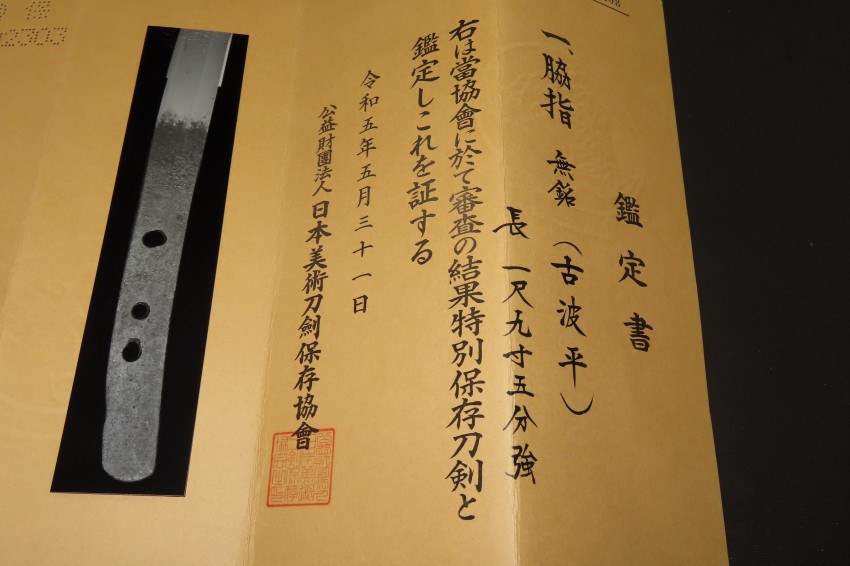 鑑定書
一、脇指 無銘（古波平）
長 一尺九寸五分強
右は當協會に於て審査の結果特別保存刀剣と
鑑定しこれを証する
令和五年五月三十一日
公益財團法人 日本美術刀劍保存協會